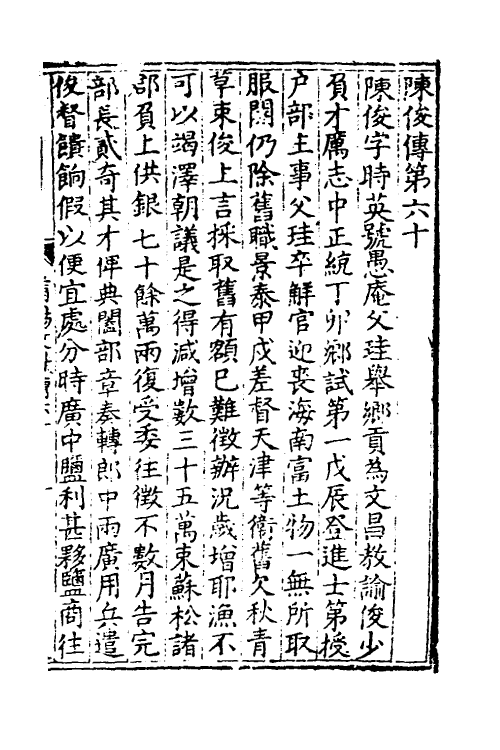 陳俊傳第六十
陳俊字時英號愚庵父珪舉鄉貢為文昌教諭俊少
負才厲志中正統丁卯鄉試第一戊辰登進士第授
户部主事父珪卒觧官迎喪海南富土物一無所取
服闋仍除舊職景泰甲戌差督天津等衛舊欠秋青
草束俊上言採取舊有額已難徵辦況歲增耶漁不
可以竭澤朝議是之得減增數三十五萬束蘇松諸
郡負上供銀七十餘萬兩復受委往徵不數月告完
部長貳奇其才俾典闔部章奏轉郎中兩廣用兵遣
俊督饋餉假以便宜處分時廣中鹽利甚夥鹽商往